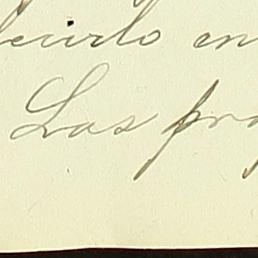 decirlo en
Las pro